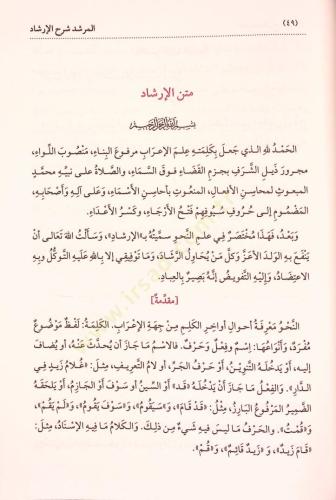 (٤٩)
المرشد شرح الإرشاد
متن الإرشاد
بسم الله الرحمن الرحيم
الحَمْدُ للهِ الذي جَعلَ بِكَلِمَتهِ عِلمَ الإعرَابِ مَرفوعَ البِناءِ، مَنْصُوبَ اللِّواءِ،
مجرورَ ذَيلِ الشَّرفِ بِجزمِ القَضَاءِ فَوقَ السَّماءِ، والصَّلاةُ على نبيِّه محمدٍ
المبعوثِ لمحاسِنِ الأفعالِ، المنعُوتِ بأحاسِنِ الأسْمَاءِ، وَعَلى آلِه وَأصْحَابِهِ،
المَضْمُومِ إلى حُروفِ سُيُوفِهِمْ فَتْحُ الأَرْجَاءِ، وكَسْرُ الأَعْدَاءِ.
وَبَعْدُ، فَهَذَا مُخْتَصَرٌ في علمِ النَّحوِ سمَّيتُهُ بـ«الإرشادِ»، وَسَألْتُ اللهَ تَعالى أن
يَنْفَعَ بِهِ الوَلدَ الأعزَّ وَكلَّ مَنْ يُحاوِلُ الرَّشَادَ، وَمَا تَوْفِيقي إلا بِاللهِ عَلَيْهِ التَّوكُّلُ وَبِهِ
الاعتِضَادُ، وَإلَيْهِ التَّفْوِيضُ إنَّهُ بَصِيرٌ بِالعِبادِ.
[مقدِّمةٌ]
النَّحْوُ مَعرِفَةُ أحوَالِ أواخِرِ الكَلِمِ مِنْ جِهَةِ الإعْرَابِ. الكَلِمَةُ: لَفظٌ مَوْضُوعٌ
مُفْرَدٌ، وَأنْوَاعُهَا: اِسْمٌ وَفِعْلٌ وَحَرفٌ. فَالاسمُ مَا جَازَ أن يُحدَّثَ عَنْهُ، أو يُضَافَ
إلَيه، أو يَدخُلَهُ التَّنْوِينُ، أوْ حَرْفُ الجَرِّ، أو لامُ التَّعرِيفِ، مثلَ: «غُلامُ زَيدٍ في
الدَّارِ». وَالفِعْلُ مَا جَازَ أنْ يَدْخُلَهُ «قَدْ» أوْ السِّينُ أو سَوْفَ أوْ الجَازِمُ، أوْ يَلحَقَهُ
الضَّمِيرُ المَرْفُوعُ البَارِزُ، مِثْلُ: «قَدْ قَامَ»، وَ«سَيَقُومُ»، وَ«سَوْفَ يَقُومُ»، وَ«لَمْ يَقُمْ»،
وَ«قُمْتُ». وَالحَرفُ مَا لَيسَ فيهِ شَيءٌ مِن ذلِكَ. وَالكَلامُ مَا فِيهِ الإسْنَادُ، مِثلَ:
«قَامَ زَيدٌ»، وَ «زَيدٌ قَائِمٌ»، وَ«قُمْ».